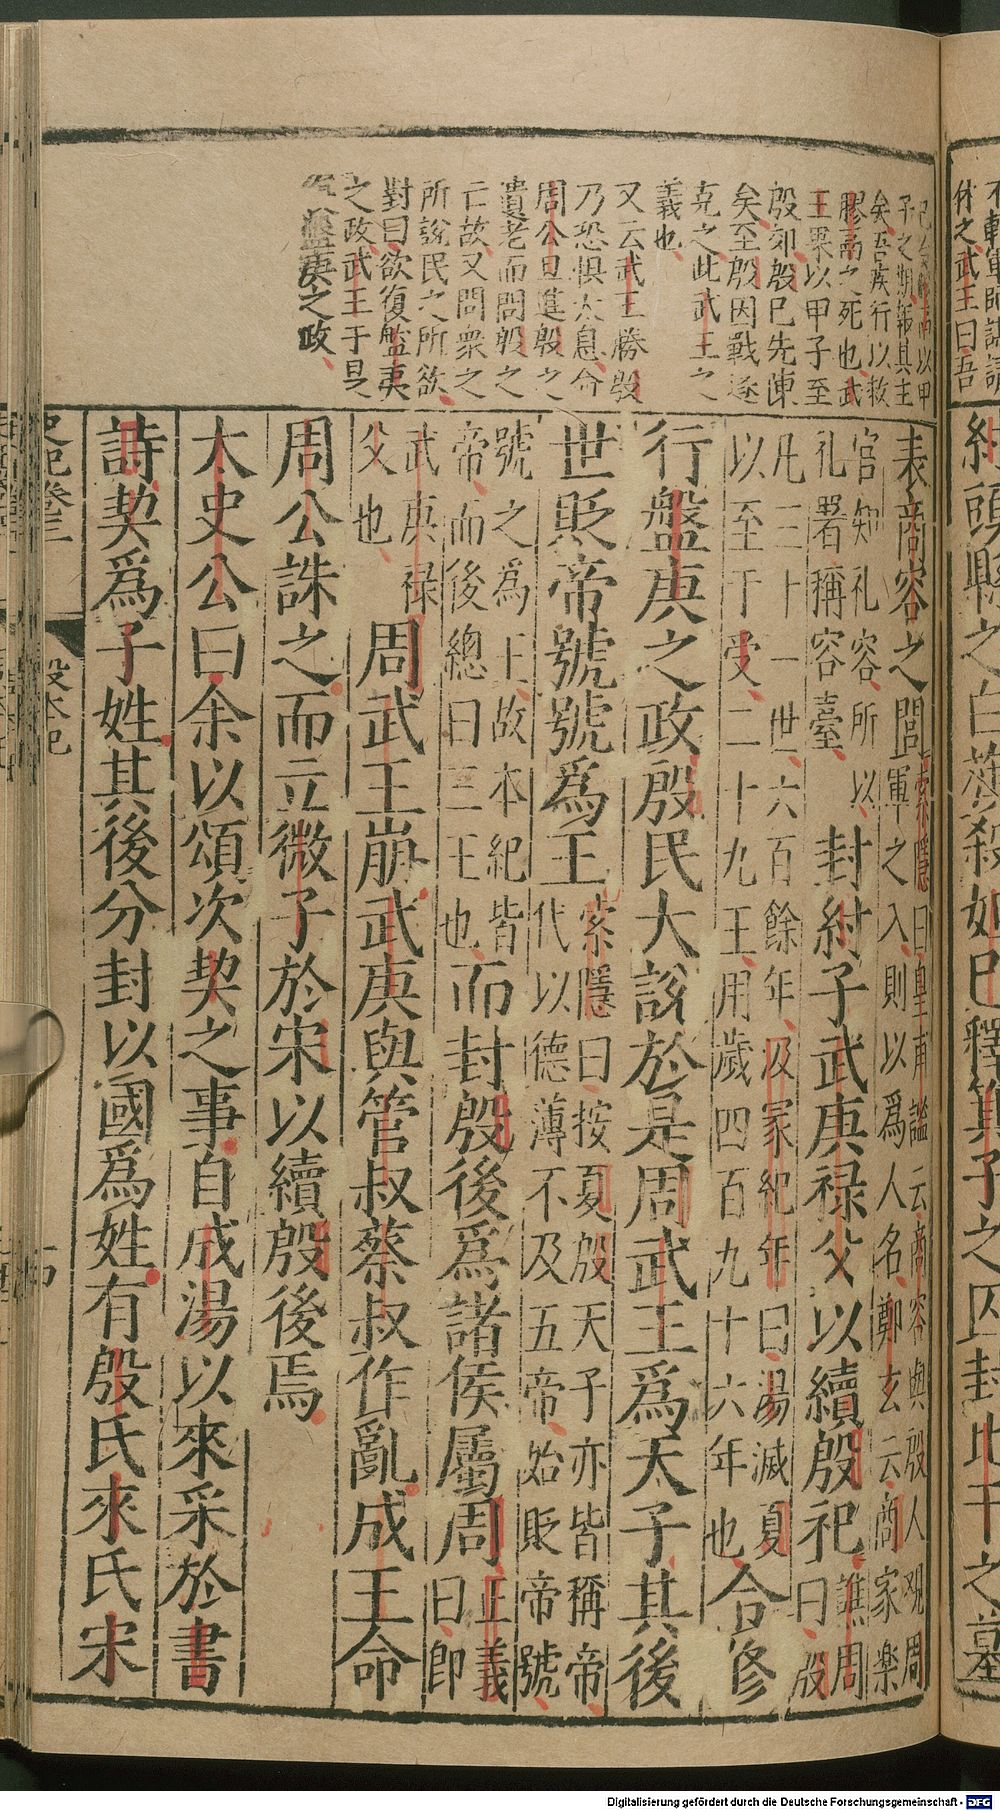 不斬軍師請
休之武王曰吾
紂頭縣之白旗殺妲己釋箕子之囚封比干之墓
以甲
子之期報其主
矣吾疾行以救
膠鬲之死也武
王果以甲子至
殷郊殷已先陳
矣至殷因戰遂
克之此武王之
義也
又云武王勝殷
乃恐惧太息命
周公旦進殷之
遺老而問殷之
亡故又問衆之
所說民之所欲
對曰欲復盤庚
之政武王于是
盤庚之政
表商容之閭索隱曰皇甫謐云商容與殷人观周
軍之入則以爲人名鄭玄云商家楽
官知礼容所以
礼署稱容臺
封紂子武庚禄父以續殷祀譙周
曰殷
凡三十一世六百餘年汲冢紀年曰湯滅夏
以至于受二十九王用歲四百九十六年也
合修
行盤庚之政殷民大說於是周武王爲天子其後
世貶帝號號爲王索隱曰按夏殷天子亦皆稱帝
代以德薄不及五帝始貶帝號
號之爲王故本紀皆
帝而後總曰三王也
而封殷後爲諸侯屬周正義
曰即
武庚禄
父也
周武王崩武庚與管叔蔡叔作亂成王命
周公誅之而立微子於宋以續殷後焉
太史公曰余以頌次契之事自成湯以來采於書
詩契爲子姓其後分封以國爲姓有殷氏來氏宋
史記卷三 殷本紀
Digitalisierung gefördert durch die Deutsche Forschungsgemeinschaft - DFG